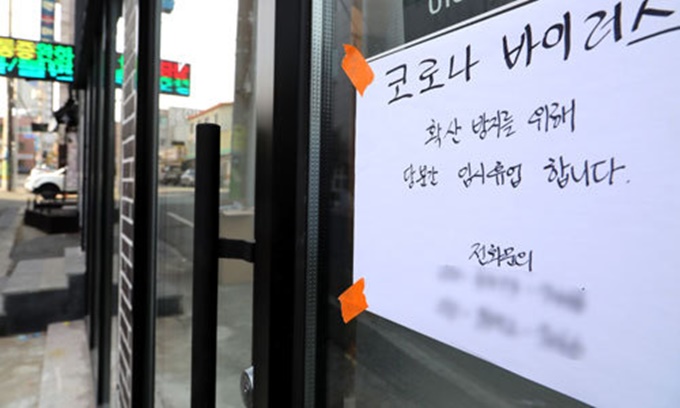 코로나 바이러스
확산 방지를 위해
당분간 임시휴업 합니다.
전화문의